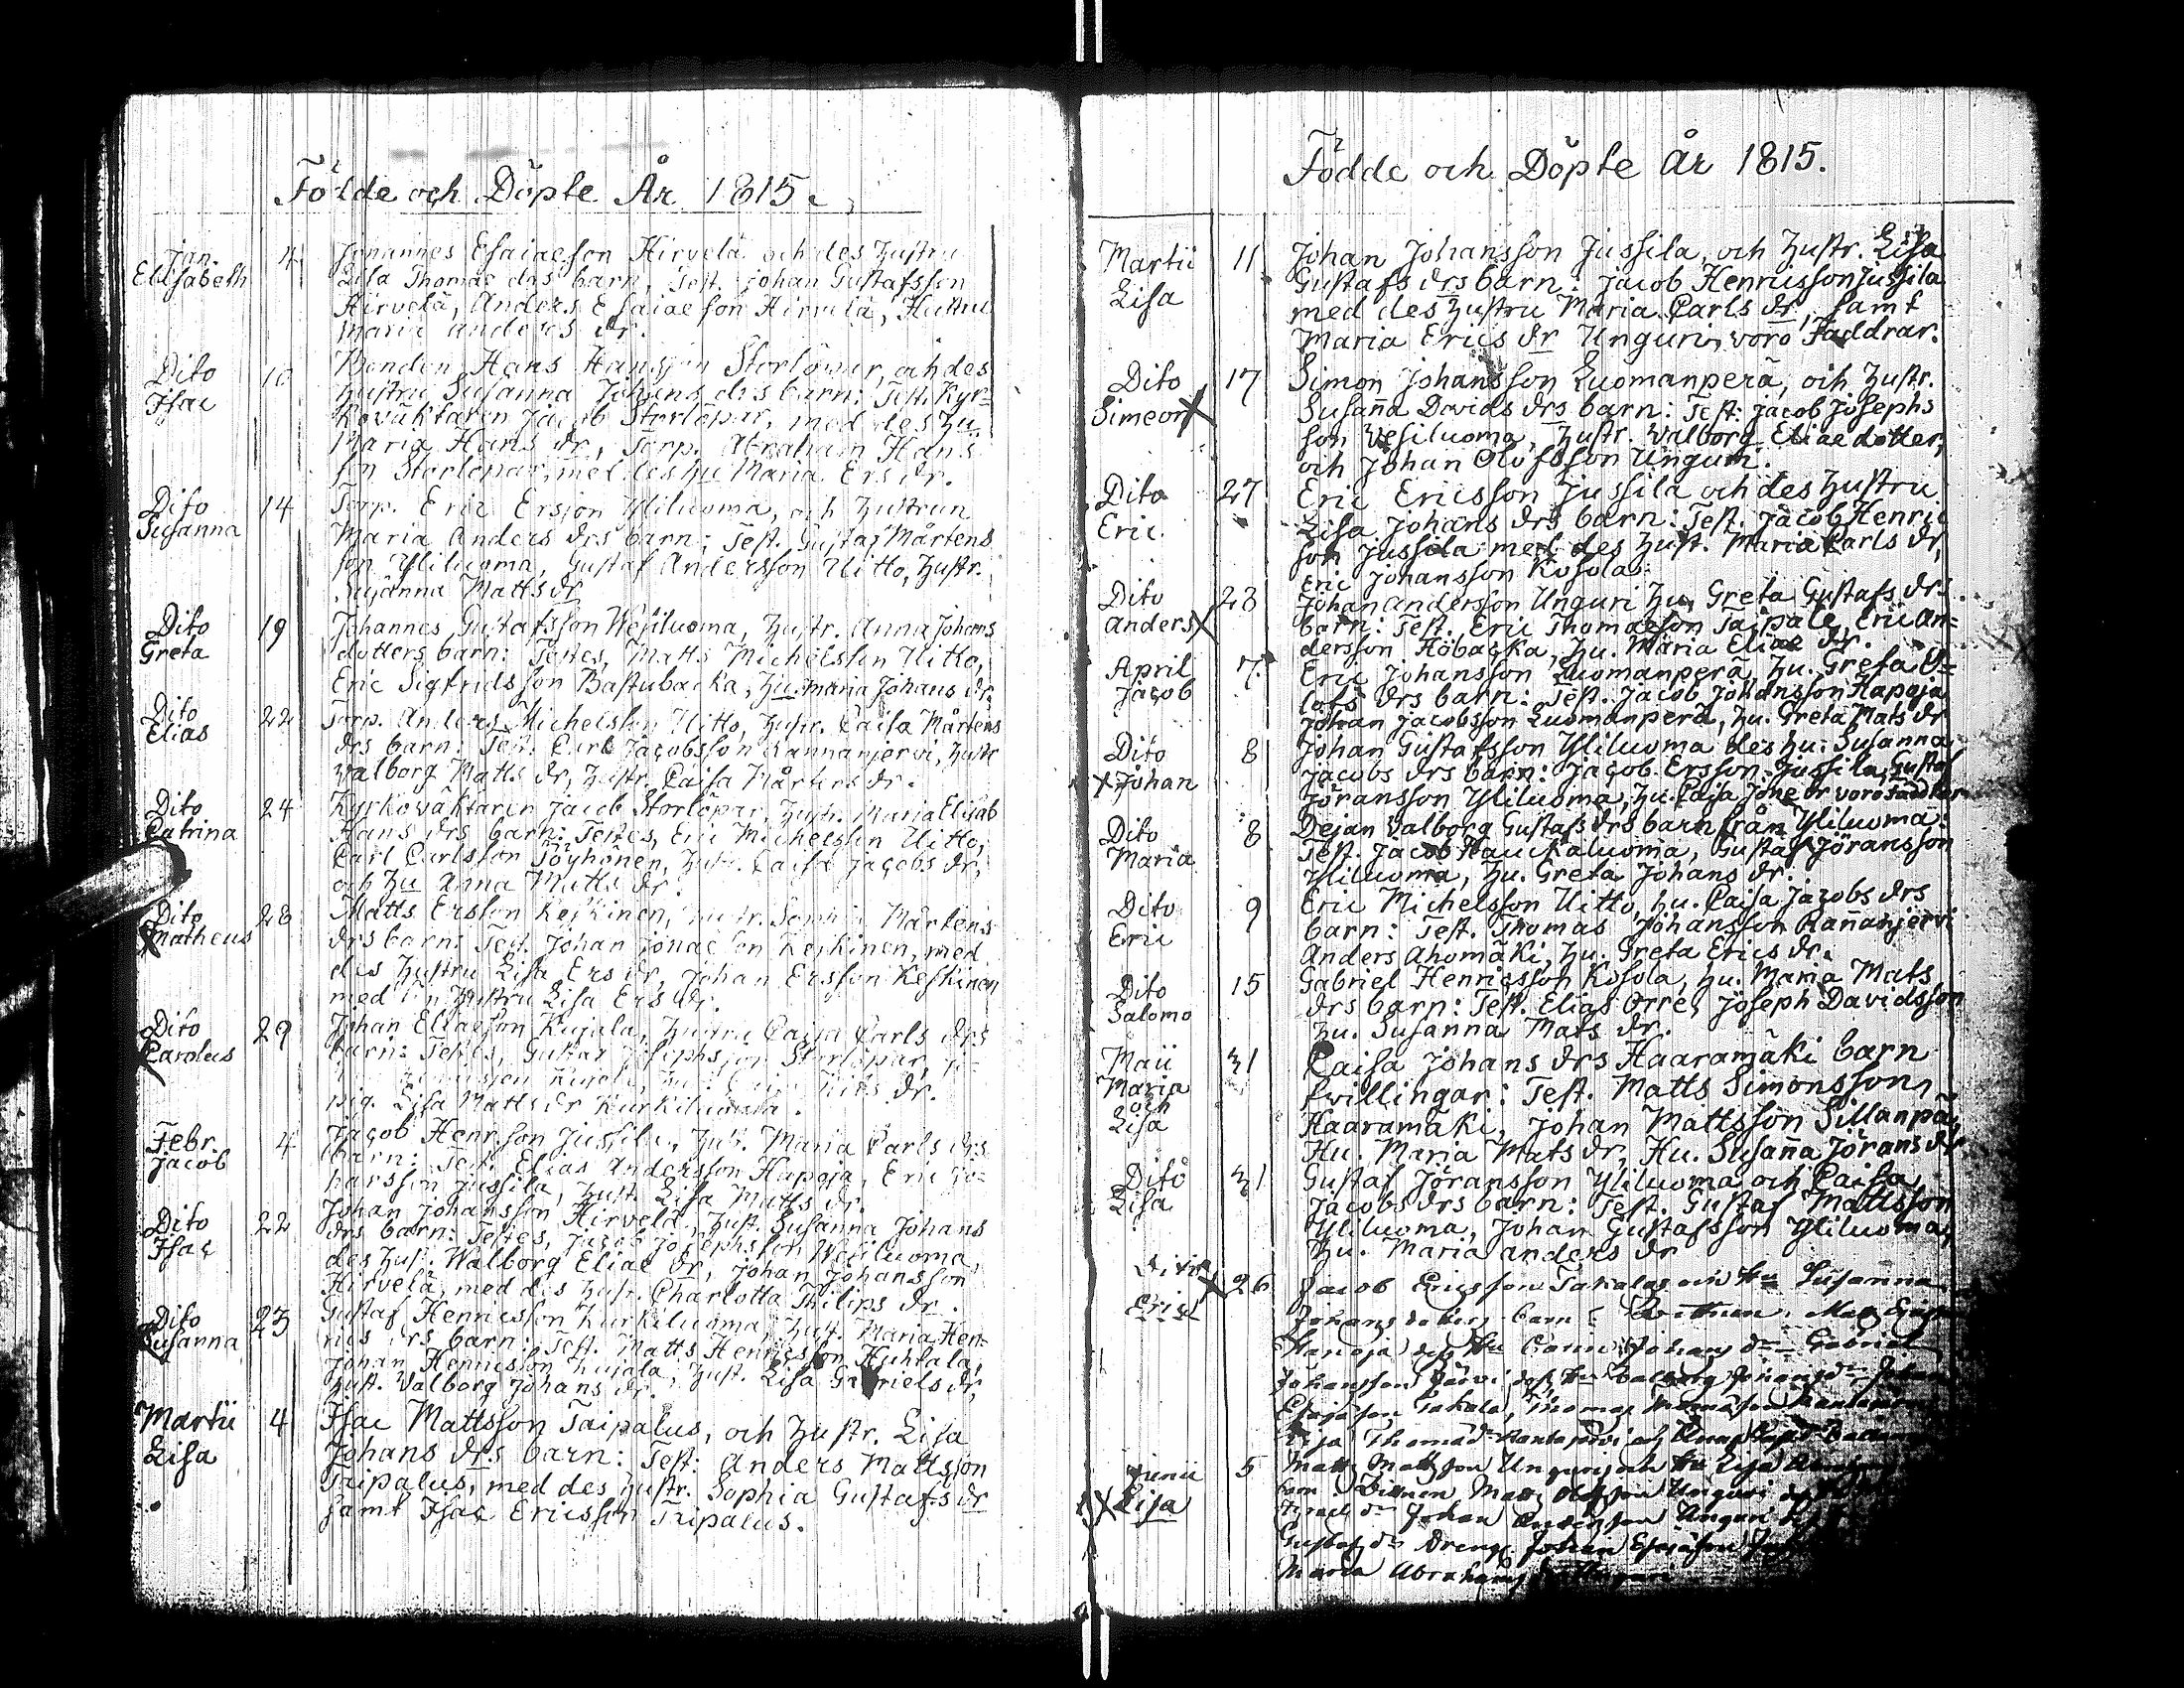 Födde och Döpte År 1815.
Jan. 4 Johannes Esaiaeson Hirvelä och des hustru
Elisabeth Lisa Thomae drs barn, Test. Johan Gustafsson
Hirvelä, Anders Esaiaeson Hirvelä, Hustru
Maria Anders dr.
Dito 10 Bonden Hans Hansson Storlöpar, och des
Isac hustru Susanna Johans drs barn: Test. Kyr-
koväktaren Jacob Storlöpar, med des hu.
Maria Hans dr, Torp. Abraham Hans
son Storlöpar, med des hu Maria Ers dr.
Dito 14 Torp. Eric Ersson Yliluoma, och hustrun
Susanna Maria Anders drs barn; Test. Gustaf Mårtens
son Yliluoma, Gustaf Andersson Uitto, hustr.
Susanna Matts dr
Dito 19 Johannes Gustafsson Wesiluoma, hustr. Anna Johans
Greta dotters barn: Testes, Matts Michelsson Uitto,
Eric Sigfridsson Bastubacka, hu. Maria Johans dr.
Dito 22 Torp. Anders Michelsson Uitto, hustr. Caisa Mårtens
Elias drs barn: Test. Carl Jacobsson Kannanjervi, hustr
Walborg Matts dr, hustr. Caisa Mårtens dr.
Dito 24 Kyrkoväktaren Jacob Storlöpar, hustr. Maria Elisab
Catrina Hans drs barn: Testes, Eric Michelsson Uitto,
Carl Carlsson Töyhönen, hust. Caisa Jacobs dr,
och hu Anna Matts dr.
Dito 28 Matts Ersson Keskinen, hustr. Sophia Mårtens
Matheus drs barn: Test. Johan Jonae son Keskinen, med
des hustru Lisa Ers dr, Johan Ersson Keskinen
med sin hustru Lisa Ers dr.
Dito 29 Johan Eliaeson Kujala, hustru Caisa Carls drs
Carolus barn: Testes, Gustaf Josephsson Storlöpar,
Kujala, dr.
pig. Lisa Matts dr Kurkiluoma.
Febr. 4 Jacob Henrsson Jussila, hust. Maria Carls drs
Jacob barn: Test. Elias Andersson Hapoja, Eric Jo-
hansson Jussila, hust. Lisa Matts dr.
Dito 22 Johan Johansson Hirvelä, hust. Susanna Johans
Isac drs barn: Testes, Jacob Josephsson Wesiluoma,
des hust. Walborg Eliae dr, Johan Johansson
Hirvelä, med des hust. Charlotta Philips dr.
Dito 23 Gustaf Henricsson Kurkiluoma, hust. Maria Hen-
Susanna rics drs barn: Test. Matts Henricsson Huhtala,
Johan Henricsson Kujala, hust. Lisa Gabriels dr,
hust. Valborg Johans dr.
Martii 4 Isac Mattsson Taipalus, och hustr. Lisa
Lisa Johans drs barn: Test: Anders Mattsson
Taipalus, med des hustr. Sophia Gustafs dr
samt Isac Ericsson Taipalus.
Födde och Döpte år 1815.
Martii 11 Johan Johansson Jussila, och hustr. Lisa
Lisa Gustafs drs barn: Jacob Henricsson Jussila
med des hustru Maria Carls dr, samt
Maria Erics dr Unguri, voro Faddrar.
Dito 17 Simon Johansson Luomanperä, och hustr.
Simeon X Susaña Davids drs barn: Test: Jacob Josephs
son Vesiluoma, hustr. Walborg Eliae dotter,
och Johan Olofsson Unguri.
Dito 27 Eric Ericsson Jussila och des hustru
Eric. Lisa Johans drs barn: Test. Jacob Henric
son Jussila med des hust. Maria Carls dr,
Eric Johansson Kosola.
Dito 23 Johan Andersson Unguri hu. Greta Gustafs drs
Anders X barn: Test. Eric Thomaeson Taipale, Eric An-
dersson Höbacka, hu. Maria Eliae dr.
April 7. Eric Johansson Luomanperä, hu. Greta O-
Jacob lofs drs barn: Test. Jacob Johansson Hapoja
Johan Jacobsson Luomanperä, hu. Greta Mats dr
Dito 8 Johan Gustafsson Yliluoma des hu: Susanna
X Johan Jacobs drs barn: Jacob Ersson Jussila, Gustaf
Jöransson Yliluoma, hu. Caisa Jone dr voro faddrar
Dito 8 Dejan Valborg Gustafs drs barn från Yliluoma:
Maria Test. Jacob Haukaluoma, Gustaf Jöransson
Yliluoma, hu. Greta Johans dr.
Dito 9 Eric Michelsson Uitto, hu. Caisa Jacobs drs
Eric barn: Test. Thomas Johansson Kañanjervi
Anders Ahomäki, hu. Greta Erics dr.
Dito 15 Gabriel Henricsson Kosola, hu. Maria Mats
Salomo drs barn: Test. Elias Orre, Joseph Davidsson
hu. Susanna Mats dr.
Maii 31 Caisa Johans drs Haaramäki barn
Maria tvillingar: Test. Matts Simonsson
och Haaramäki, Johan Mattsson Sillanpä,
Lisa Hu. Maria Mats dr, Hu. Susaña Jörans dr
Dito 31 Gustaf Jöransson Yliluoma och Caisa
Lisa Jacobs drs barn: Test. Gustaf Mattsson
Yliluoma, Johan Gustafsson Yliluoma,
hu. Maria Anders dr
Dito X 26 Jacob Ericsson Takala och hu Susanna
Eric Johans dotters barn: Wittnen: Matts
Hanoja des hu Carin Johans dr Gabriel
Johansson Järvi des hu Walborg Johans dr Johan
Esaiason Takala, Thomas
Caisa Thomae dr
Junii 5 Matts Mattsson Unguri och hu Lisa
X Lisa barn Wittnen Matts Olofsson Unguri des
dr Johan Andersson Unguri
Gustafs dr Dreng Johan Esaiäson
Maria Abrahams